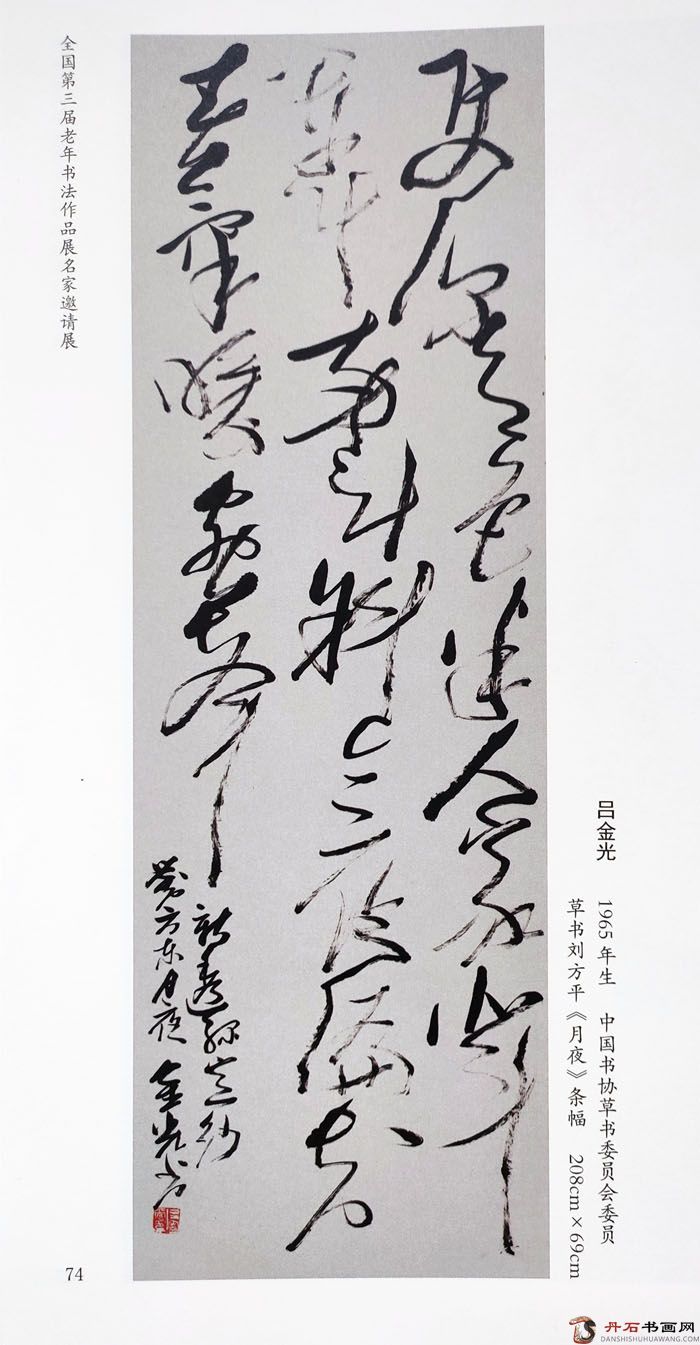 全国第三届老年书法作品展名家邀请展
更深月色半人家北斗
阑干南斗斜今夜偏知
春氣暖蟲聲
新透綠窗紗
劉方平月夜 金光书
吕金光 1965年生 中国书协草书委员会委员
草书刘方平《月夜》条幅 208cm×69cm
74
丹石书画网
DANSHISHUHUAWANG.COM